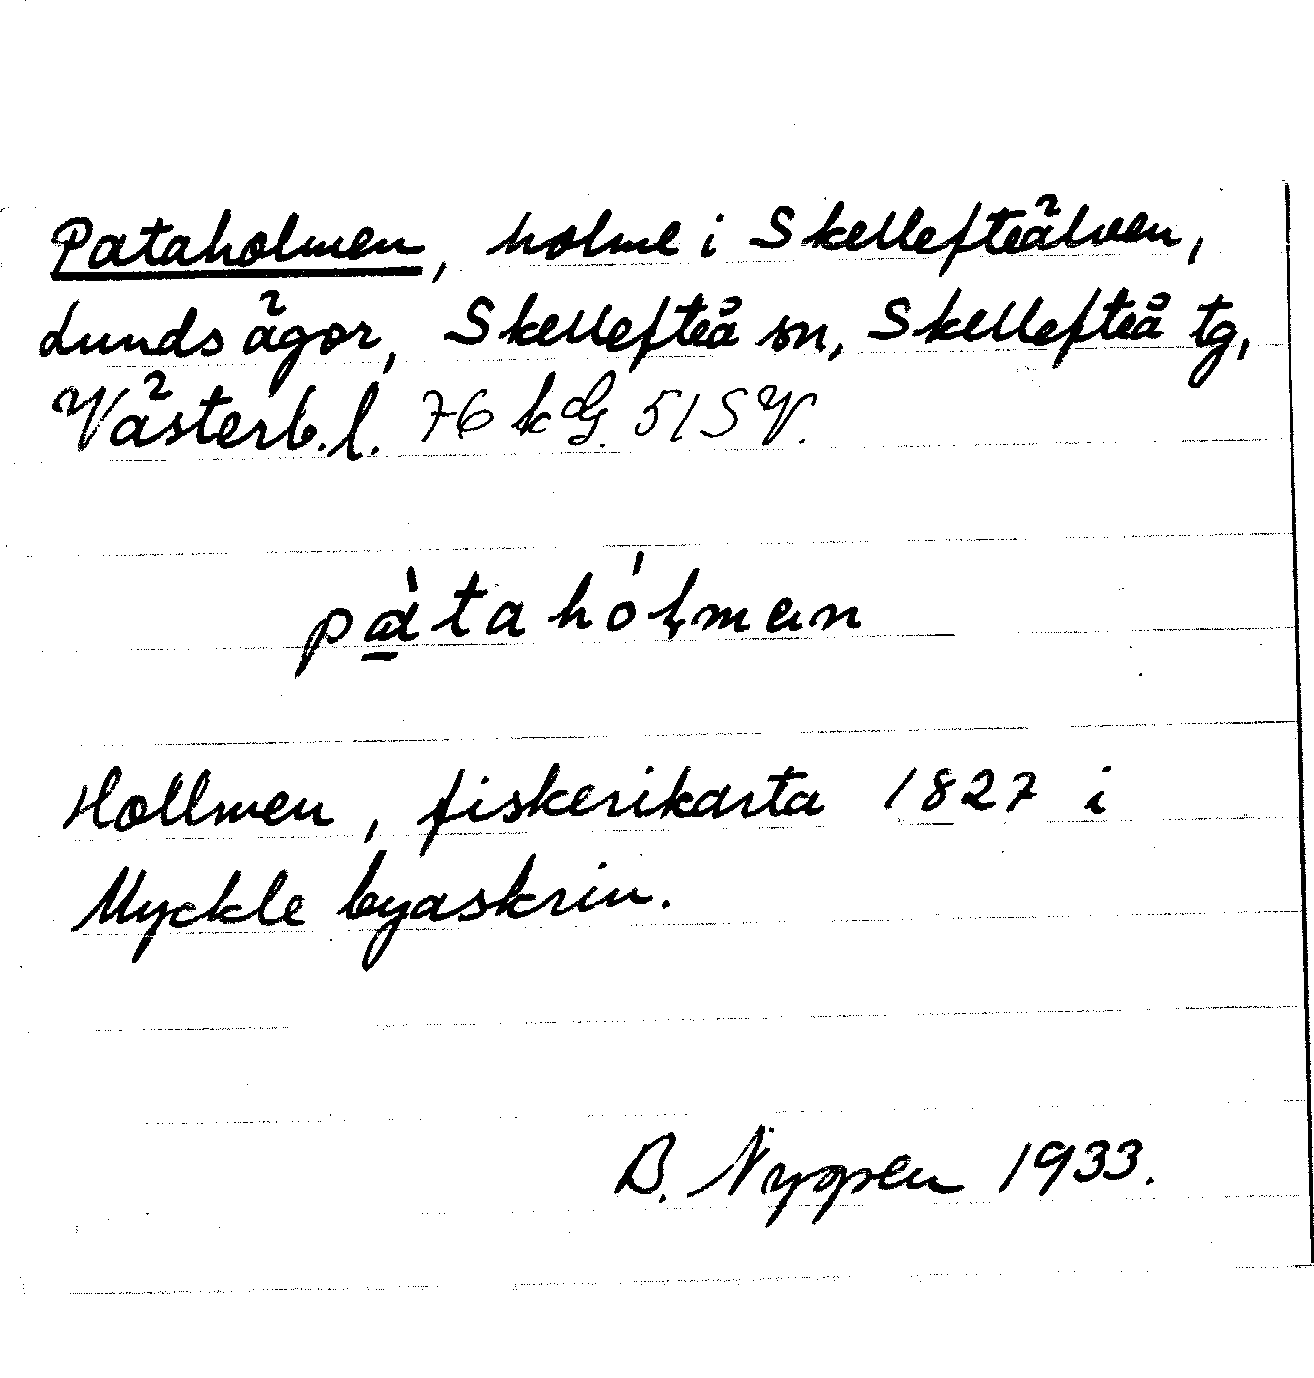 Pataholmen, holme i Skellefteälven,
Lunds ägor, Skellefteå sn, Skellefteå tg,
Västerb. l. 76 k G. 51 SV.
pàtahólmen
Hollmen, fiskerikarta 1827 i
Myckle byaskrin.
B. Nyppen 1933.